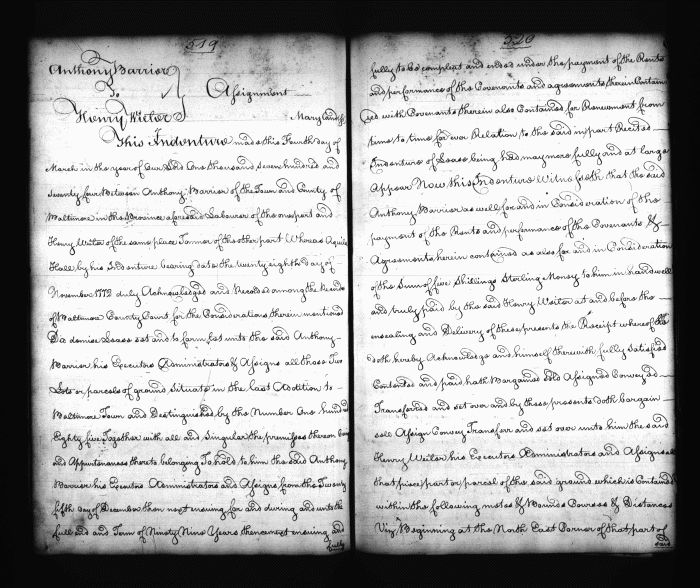 519
Anthony Warrior
To
Assignment
Henry Weiter
Maryland ss
This Indenture made this Fourth day of
March in the year of Our Lord One thousand seven hundred and
seventy four Between Anthony Warrior of the Town and County of
Baltimore in the Province aforesaid Labourer of the one part and
Henry Weiter of the same place Tanner of the other part Whereas Aquila
Hall by his Indenture bearing date the twenty eighth day of
November 1772 duly Acknowledged and Recorded among the Records
of Baltimore County Court for the Considerations therein mentioned
Did demise Lease set and to farm let unto the said Anthony
Warrior his Executors Administrators & Assigns all those Two
Lots or parcels of ground situate in the last Addition to
Baltimore Town and Distinguished by the Number One hundred
Eighty five Together with all and Singular the premisses thereon
and Appurtenances thereto belonging To hold to him the said Anthony
Warrior his Executors Administrators and Assigns from the Twenty
fifth day of December then next ensuing for and during and unto the
full end and Term of Ninety Nine Years thence next ensuing and
fully
520
fully to be compleat and ended under the payment of the Rents
and performance of the Covenants and agreements therein Contain
ed with Covenants therein also Contained for Renewment from
time to time for ever Relation to the said in part Recited
Indenture of Lease being had may more fully and at large
Appear Now this Indenture Witnesseth that the said
Anthony Warrior as well for and in Consideration of the
payment of the Rents and performance of the Covenants &
Agreements herein contained as also for and in Consideration
of the Sum of five Shillings Sterling Money to him in hand well
and truly paid by the said Henry Weiter at and before the
ensealing and Delivery of these presents the Receipt whereof he
doth hereby Acknowledge and himself therewith fully Satisfied
Contented and paid hath Bargained Sold Assigned Conveyed
Transferred and set over and by these presents doth bargain
sell Assign Convey Transfer and set over unto him the said
Henry Weiter his Executors Administrators and Assigns all
that piece part or parcel of the said ground which is Contained
within the following metes & Bounds Courses & Distances
Viz. Beginning at the North East Corner of that part of
said